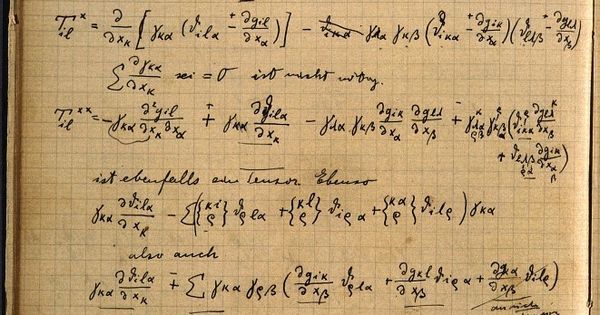 T_{il}^{x} = ∂/∂x_κ [γ_{κα} (ϑ_{ilα} ∓ ∂g_{il}/∂x_α)] − γ_{λα} γ_{κβ} (ϑ_{iκα} ∓ ∂g_{iκ}/∂x_α)(ϑ_{lλβ} ∓ ∂g_{lλ}/∂x_β)
∑ ∂γ_{κα}/∂x_κ = 0 ist nicht nötig.
T_{il}^{xx} = −γ_{κα} ∂²g_{il}/∂x_κ∂x_α + γ_{κα} ∂ϑ_{ilα}/∂x_κ − γ_{λα} γ_{κβ} ∂g_{iκ}/∂x_α ∂g_{lλ}/∂x_β
ist ebenfalls ein Tensor Ebenso
γ_{κα} ∂ϑ_{ilα}/∂x_κ − ∑({κi ϱ} ϑ_{ϱlα} + {κl ϱ} ϑ_{iϱα} + {κα ϱ} ϑ_{ilϱ}) γ_{κα}
also auch
γ_{κα} ∂ϑ_{ilα}/∂x_κ ∓ ∑ γ_{κα} γ_{ϱβ} (∂g_{iκ}/∂x_β ϑ_{ϱlα} + ∂g_{κl}/∂x_β ϑ_{iϱα} + ∂g_{κα}/∂x_β ϑ_{ilϱ})